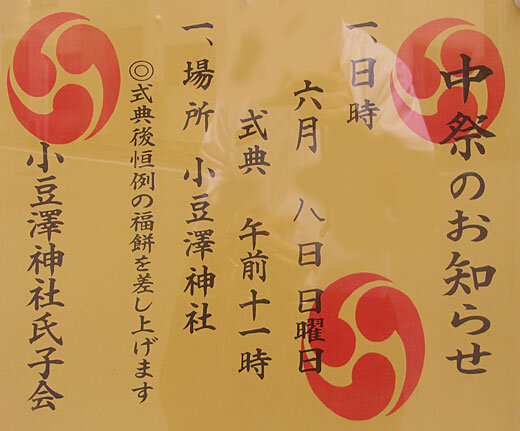 中祭のお知らせ
一、日時
六月 八日 日曜日
式典 午前十一時
一、場所 小豆澤神社
◎式典後恒例の福餅を差し上げます
小豆澤神社氏子会